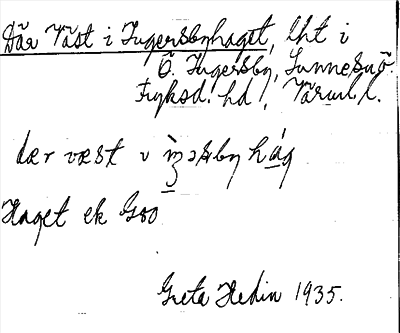 Där Väst i Ingersbyhaget, lht i
Ö. Ingersby, Sunne sn Ö.
Fryksd. hd, Värml. l.
dær væst ɩ
Haget ek G
Greta Hedin 1935.